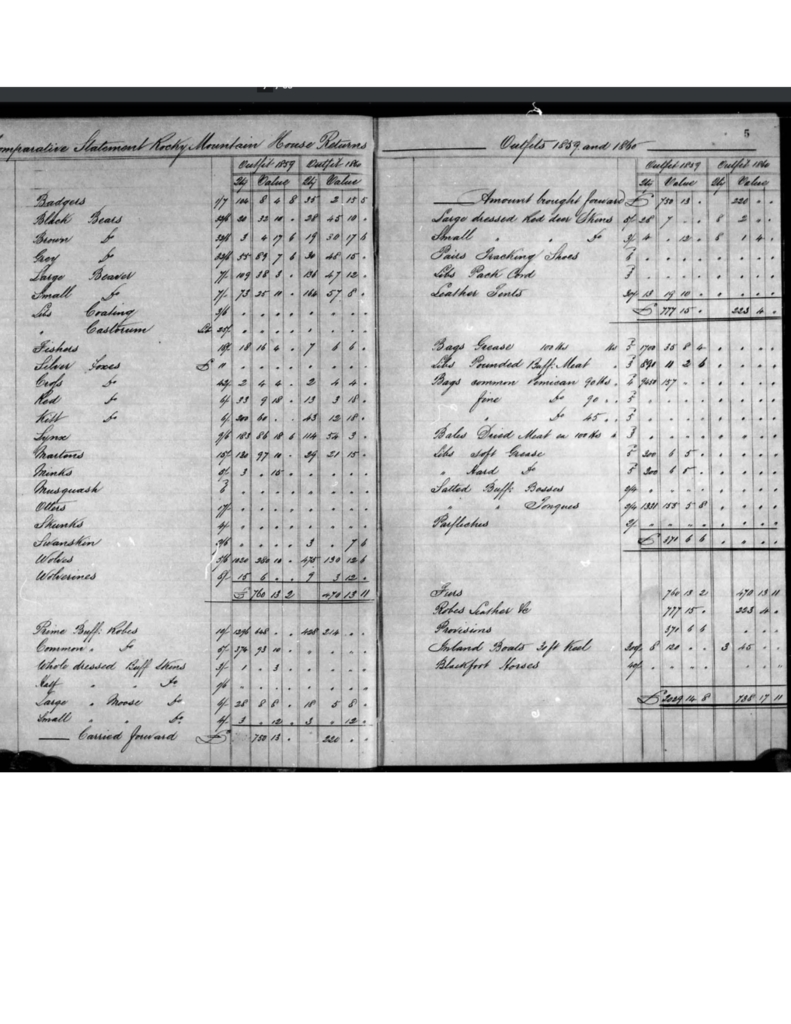 Comparative Statement Rocky Mountain House Returns
Outfit 1859 Outfit 1860
Qty Value Qty Value
Badgers 1/7 104 8 4 8 35 2 15 5
Black Bears 32/6 20 32 10 . 28 45 10 .
Brown Do 32/6 3 4 17 6 19 30 17 6
Grey Do 32/6 55 89 7 6 30 48 15 .
Large Beaver 7/. 109 38 3 . 136 47 12 .
Small Do 7/. 73 25 10 . 164 57 8 .
Lbs Coating 2/6 . . . . . . . .
" Castorum . . . . . . . .
Fishers 18/. 18 16 4 . 7 6 6 .
Silver Foxes £ . . . . . . . .
Cross Do 2 4 4 . 2 4 4 .
Red Do 6/. 33 9 18 . 13 3 18 .
Kitt Do 6/. 200 60 . . 43 12 18 .
Lynx 9/6 183 86 18 6 114 54 3 .
Martens 15/. 130 97 10 . 29 21 15 .
Minks 5/. 3 . 15 . . . . .
Musquash . . . . . . . .
Otters . . . . . . . .
Skunks 4/. . . . . . . . .
Swanskin 2/6 . . . . 3 . 7 6
Wolves 5/6 1020 280 10 . 475 130 12 6
Wolverines 8/. 15 6 . . 9 3 12 .
£ 760 13 2 470 13 11
Prime Buff: Robes 10/. 1296 648 . . 428 214 . .
Common " Do 5/. 374 93 10 . . . . .
Whole dressed Buff Skins 3/. 1 . 3 . . . . .
Half " " Do . . . . . . . .
Large " Moose Do 6/. 28 8 8 . 18 5 8 .
Small " " Do 4/. 3 . 12 . 3 . 12 .
Carried forward £ 750 13 . 220 . .
5
Outfits 1859 and 1860
Outfit 1859 Outfit 1860
Qty Value Qty Value
Amount brought forward £ 750 13 . 220 . .
Large dressed Red deer Skins 5/. 28 7 . . 8 2 . .
Small " " Do 3/. 4 . 12 . 8 1 4 .
Pairs Tracking Shoes . . . . . . . .
Lbs Pack Cord
Leather Tents 30/. 13 19 10 . . . . .
£ 777 15 . 223 4 .
Bags Grease 100 lbs 1700 35 8 4 . . . .
Lbs Pounded Buff: Meat 890 11 2 6 . . . .
Bags common Pemican 90 lbs 9450 157 . . . . . .
" fine Do 90 . . . . . . . .
" " Do 45 . . . . . . . .
Bales Dried Meat ea 100 lbs . . . . . . . .
Lbs Soft Grease 300 6 5 . . . . .
" Hard Do 300 6 5 . . . . .
Salted Buff: Bosses . . . . . . . .
" " Tongues 2/4 1331 155 5 8 . . . .
Parfleches 2/. . . . . . . . .
£ 371 6 6 . . .
Furs 760 13 2 470 13 11
Robes Leather &c 777 15 . 223 4 .
Provisions 371 6 6 . . .
Inland Boats 30ft Keel 300/. 8 120 . . 3 45 . .
Blackfoot Horses 40/. . . . . . . . .
£ 2029 14 8 738 17 11